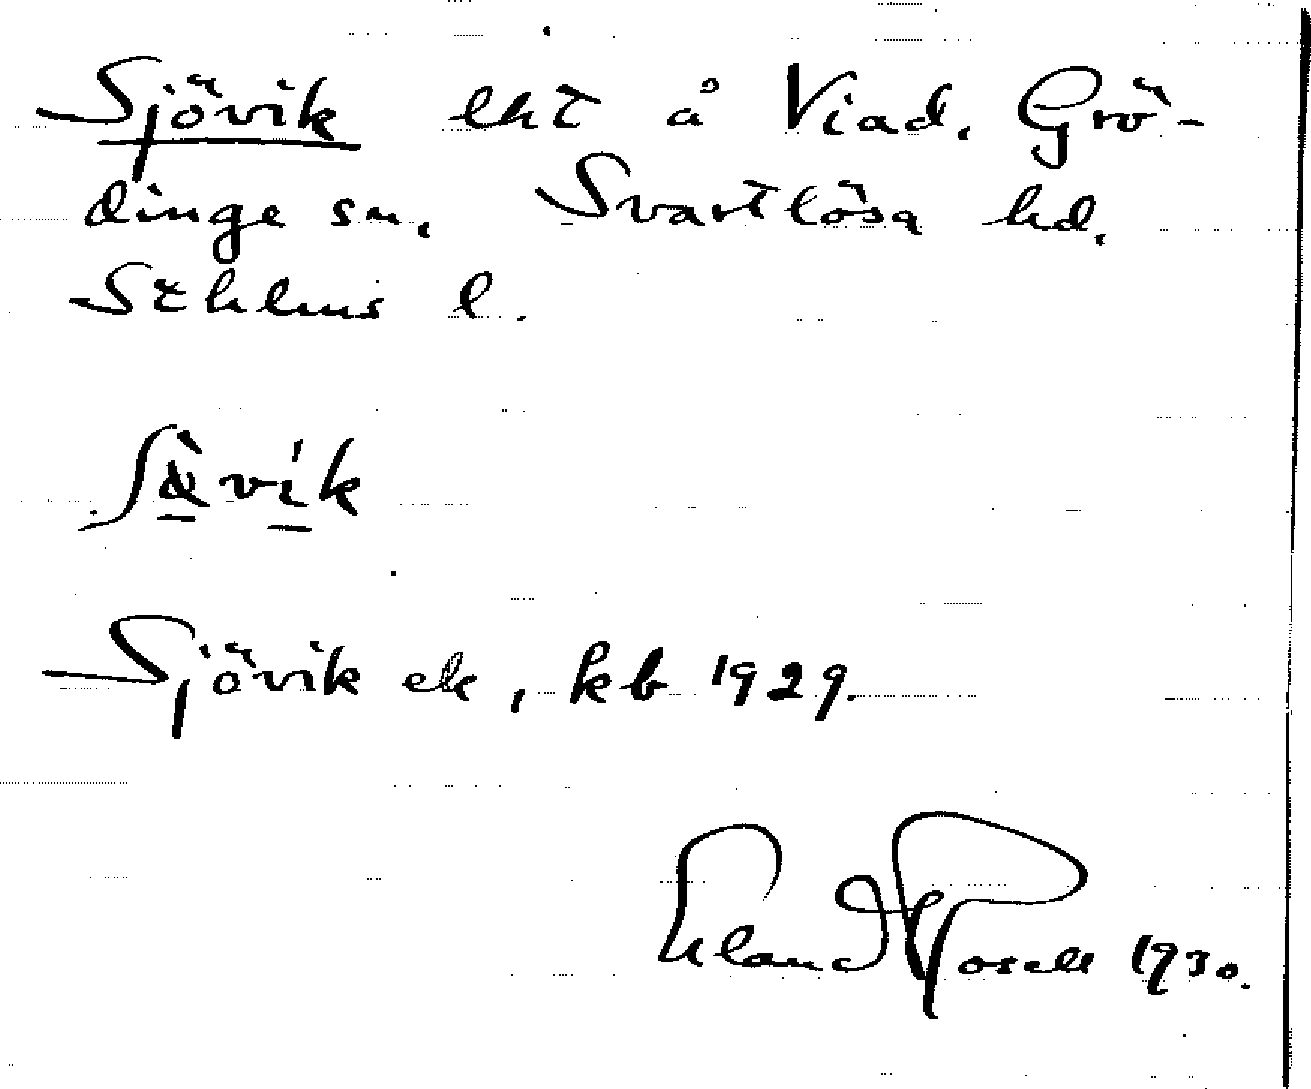 Sjövik lht å Viad. Grö-
dinge sn. Svartlösa hd.
Sthlms l.
Sjövik ek, kb 1929.
Erland Rosell 1930.